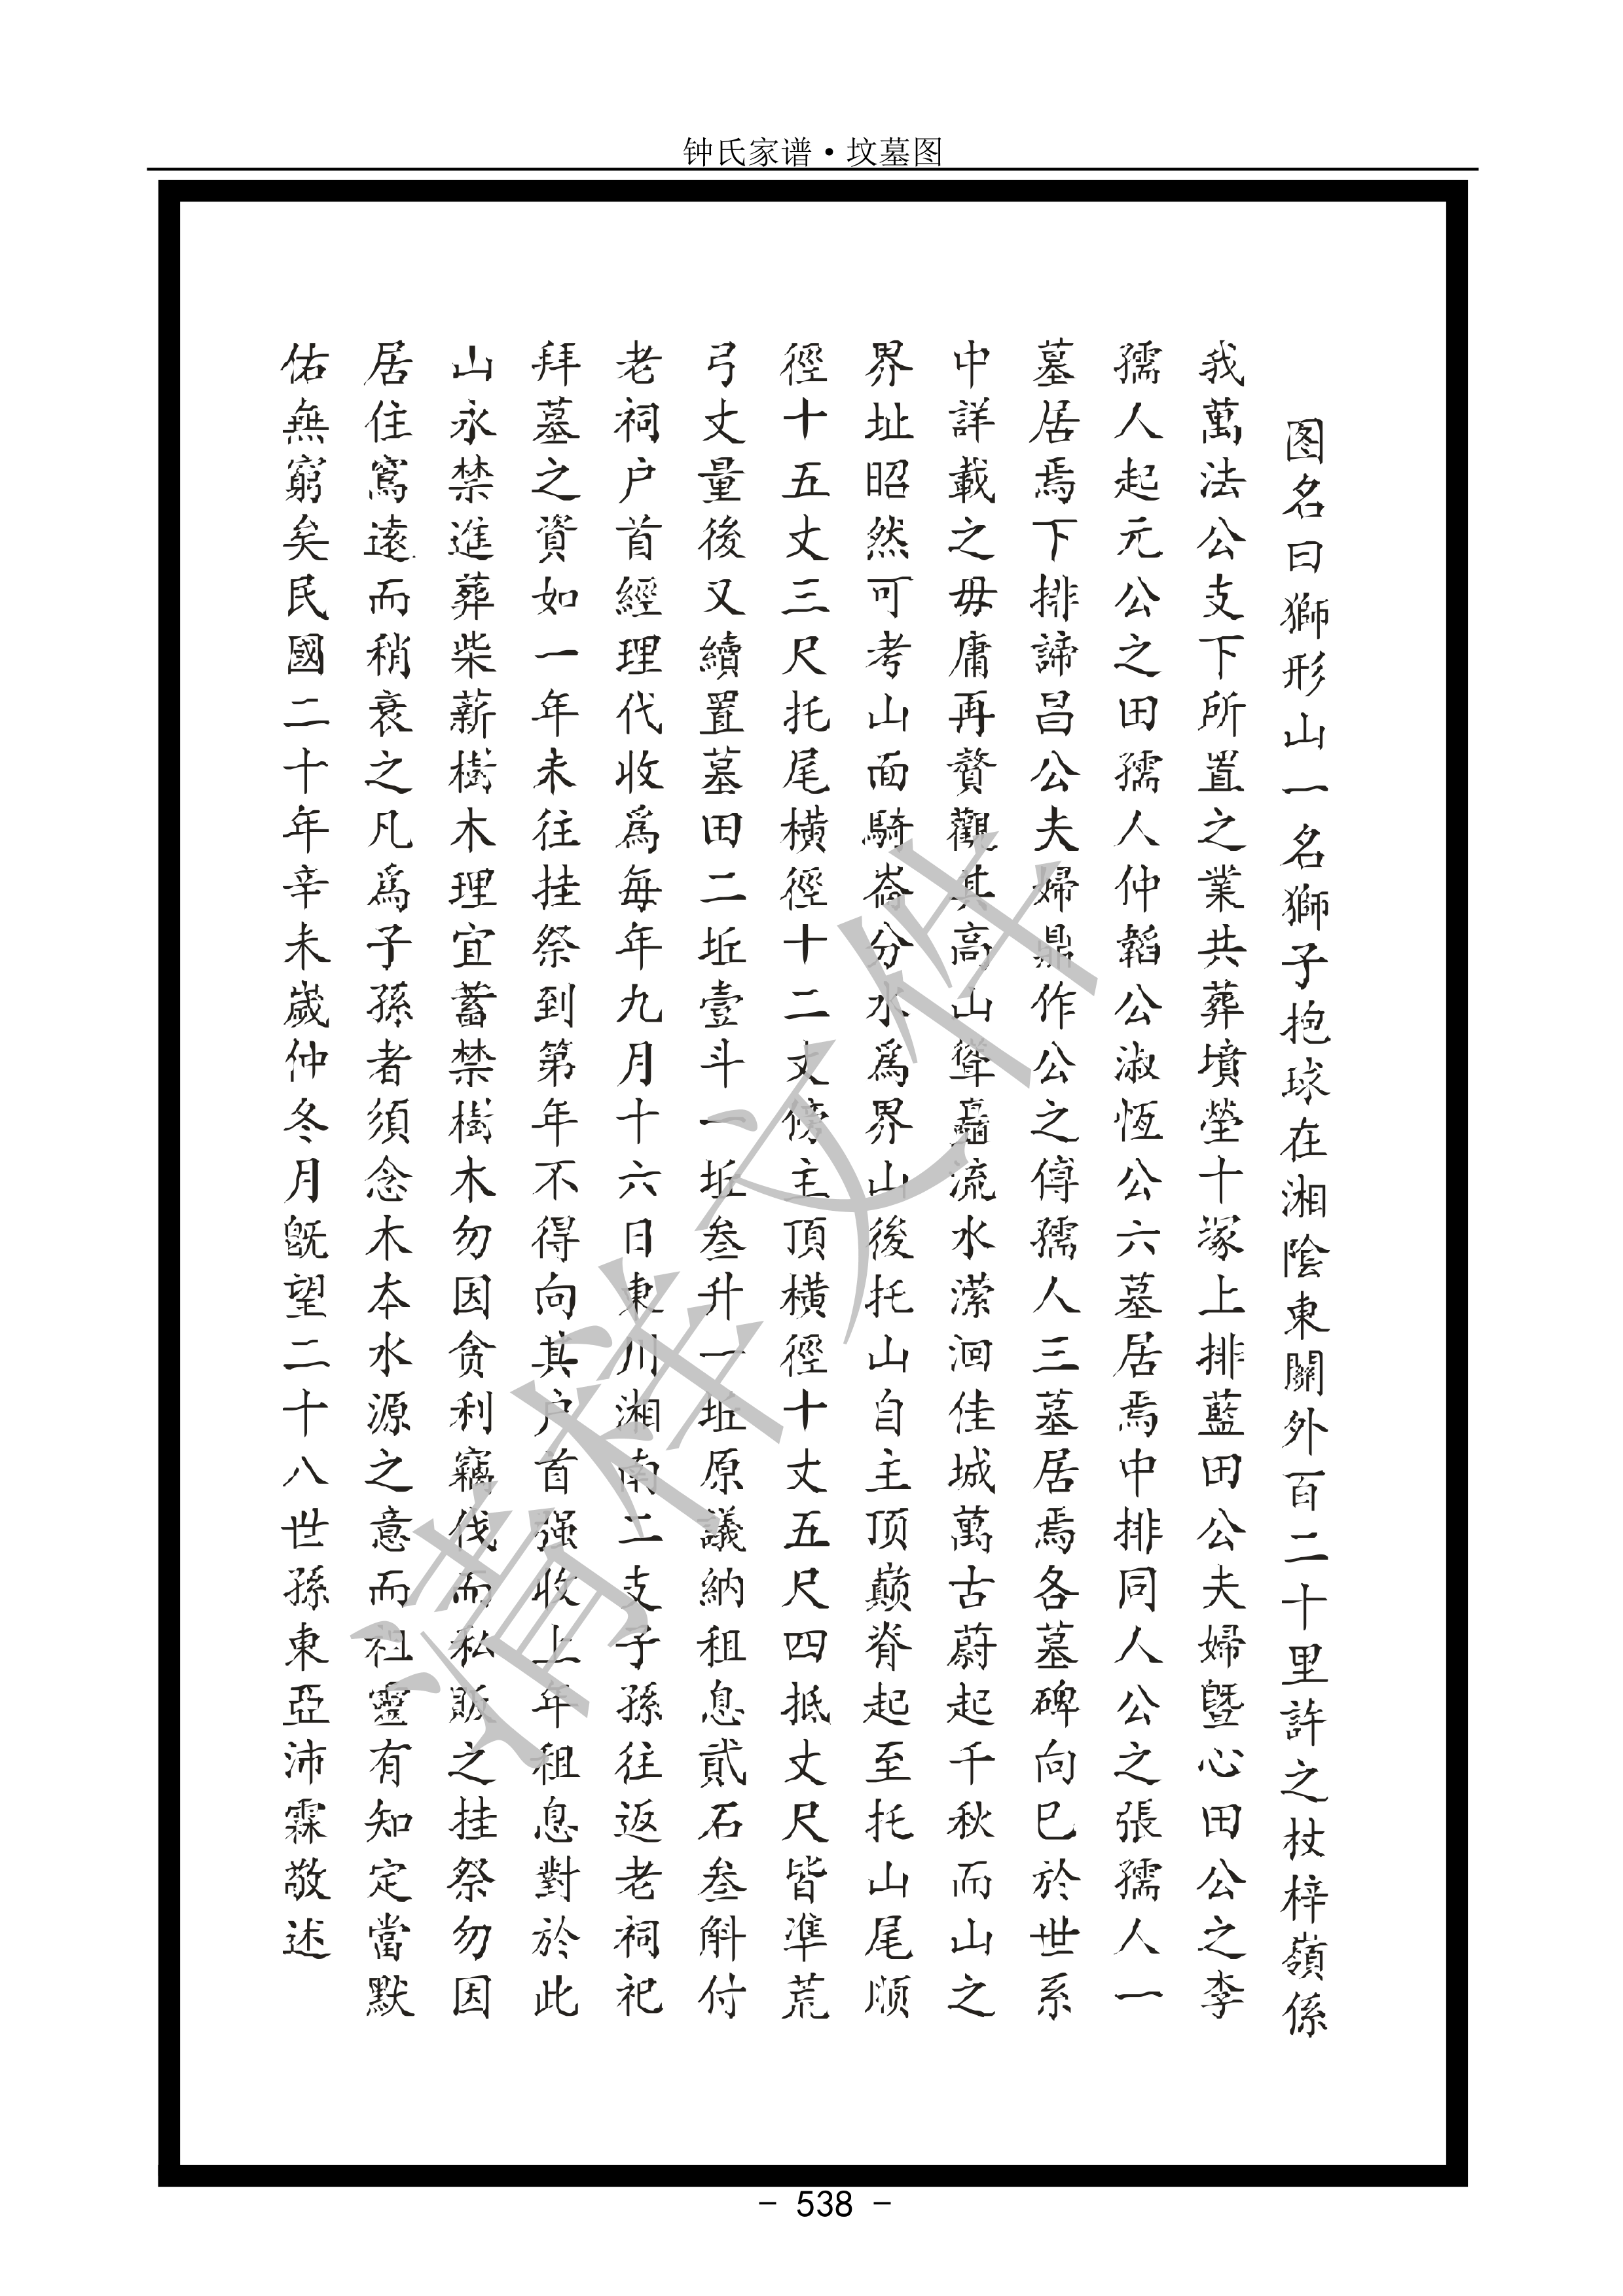 钟氏家谱·坟墓图
图名曰獅形山一名獅子抱球在湘陰東關外百二十里許之杖梓嶺係
我萬法公支下所置之業共葬墳塋十塚上排藍田公夫婦暨心田公之李
孺人起元公之田孺人仲韜公淑恆公六墓居焉中排同人公之張孺人一
墓居焉下排諦昌公夫婦鼎作公之傅孺人三墓居焉各墓碑向巳於世系
中詳載之毋庸再贅觀其高山聳矗流水瀠洄佳城萬古蔚起千秋而山之
界址昭然可考山面騎崙分水爲界山後托山自主顶巅脊起至托山尾順
徑十五丈三尺托尾橫徑十二丈傍主頂橫徑十丈五尺四抵丈尺皆準荒
弓丈量後又續置墓田二坵壹斗一坵叁升一坵原議納租息貳石叁斛付
老祠户首經理代收爲每年九月十六日東川湘南二支子孫往返老祠祀
拜墓之資如一年未往挂祭到第年不得向其户首强收上年租息對於此
山永禁進葬柴薪樹木理宜蓄禁樹木勿因贪利竊伐而私販之挂祭勿因
居住寫遠而稍衰之凡爲子孫者須念木本水源之意而祖靈有知定當默
佑無窮矣民國二十年辛未歲仲冬月既望二十八世孫東亞沛霖敬述
清样文件
- 538 -